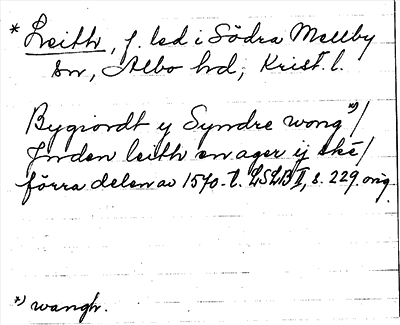 * Leith, f. led i Södra Mellby
sn, Albo hd, Krist. l.
Bygiordt y Syndre wong *)/
Inden leith en ager ij ske/
förra delen av 1570-t. LSLB II, s. 229. orig.
*) wangh.